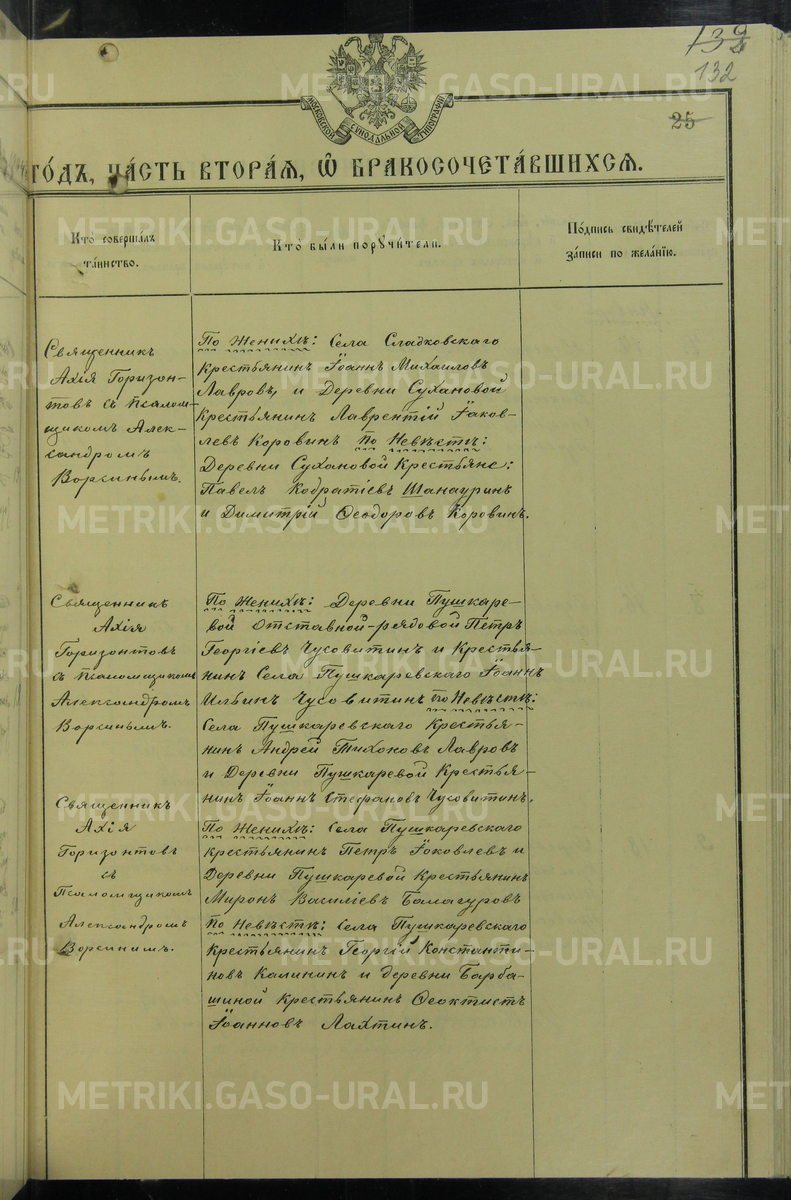 132
132
25
МОСКОВСКОЙ СѴНОДАЛЬНОЙ ТИПОГРАФІИ
го́дъ, ча́сть втора́ѧ, ѡ҆ бракосочета́вшихсѧ.
Кто̀ соверша́лъ
та́инство.
Кто̀ бы́ли порꙋчи́тели.
По́дпись свидѣ́телей
за́писи по жела́нїю.
Священникъ
Ахія Горизон-
товъ съ Псалом-
щикомъ Алек-
сандромъ
Ворсинымъ.
По Женихѣ: Села Сладковскаго
крестьянинъ Іоаннъ Михаиловъ
Лавровъ, и Деревни Сухановой
крестьянинъ Лаврентій Іаков-
левъ Коровинъ По Невѣстѣ:
Деревни Сухановой Крестьяне:
Павелъ Кодратіевъ Шанауринъ
и Димитрій Ѳеодоровъ Коровинъ.
Священникъ
Ахія
Горизонтовъ
съ Псаломщикомъ
Александромъ
Ворсинымъ.
По Женихѣ: Деревни Пушкаре-
вой Отставной-рядовой Петръ
Георгіевъ Чусовитинъ и Крестья-
нинъ Села Пушкаревскаго Іоаннъ
Ильинъ Чусовитинъ По Невѣстѣ:
Села Пушкаревскаго Крестья-
нинъ Андрей Тихоновъ Лавровъ
и Деревни Пушкаревой Крестья-
нинъ Іоаннъ Стефановъ Чусовитинъ.
Священникъ
Ахія
Горизонтовъ
съ
Псаломщикомъ
Александромъ
Ворсинымъ.
По Женихѣ: Села Пушкаревскаго
крестьянинъ Петръ Іоковлевъ и
Деревни Пушкаревой Крестьянинъ
Миронъ Василіевъ Балагуровъ
По Невѣстѣ: Села Пушкаревскаго
Крестьянинъ Георгій Константи-
новъ Калининъ и деревни Барба-
шиной Крестьянинъ Ѳеоктистъ
Іоанновъ Лахтинъ.
METRIKI.GASO-URAL.RU